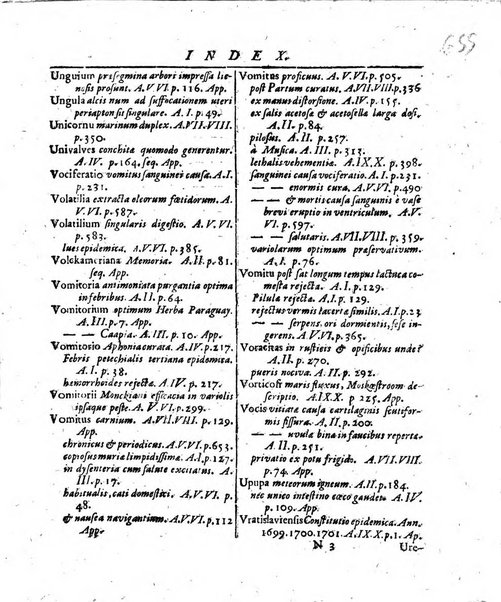 655
INDEX.
Unguium presegmina arbori impressa lie-
nosis prosunt. A. V. VI. p. 116. App.
Ungula alcis num ad suffocationem uteri
periaptonsit singulare. A. I. p. 49.
Unicornu marinum duplex. A. VII. VIII.
p. 350.
Univalves conchita quomodo generentur.
A. IV. p. 164. seq. App.
Vociferatio vomitus sanguinei causa. A. I.
p. 231.
Volatilia extracta oleorum fœtidorum. A.
V. VI. p. 587.
Volatilium singularis digestio. A. V. VI.
p. 583.
lues epidemica. A. V. VI. p. 385.
Volckameriana Memoria. A. II. p. 81.
seq. App.
Vomitoria antimoniata purgantia optima
in febribus. A. II. p. 64.
Vomitorium optimum Herba Paraguay.
A. III. p. 7. App.
— — Caapia. A. III. p. 10. App.
Vomitosio Aphonia curata. A. IV. p. 217.
Febris petechialis tertiana epidemica.
A. I. p. 38.
hæmorrhoides rejectæ. A. IV. p. 217.
Vomitorii Monckhians efficacia in variolis
ipsaque peste. A. V. VI. p. 299.
Vomitus carnium. A. VII. VIII. p. 129.
App.
chronicus & periodicus. A. V. VI. p. 653.
copiosus muriæ limpidissimæ. A. I. p. 56.
in dysenteria cum salute excitatus. A.
III. p. 17.
habitualis, cati domestici. A. V. VI. p.
48.
& nausea navigantium. A. V. VI. p. 112
App.
Vomitus proficuus. A. V. VI. p. 505.
post Partum curatus. A. VII. VIII. p. 336
ex manus distorsione. A. IV. p. 155.
ex salis acetosæ & acetosella larga dosi.
A. II. p. 84.
pilosus. A. II. p. 257.
à Musica. A. III. p. 313.
lethalis vehementiæ. A. IX. X. p. 398.
sanguinei causa vociferatio. A. I. p. 231.
— — enormis cura. A. V. VI. p. 490
— — & mortis causa sanguinis è vase
brevi eruptio in ventriculum. A. V.
VI. p. 597.
— — salutaris. A. VII. VIII. p. 359.
variolarum optimum præservativum.
A. I. p. 76.
Vomitu post sat longum tempus lactucæ co-
mestæ rejecta. A. I. p. 129.
Pilula rejecta. A. I. p. 129.
rejectus vermis lacertæ similis. A. I. p. 23
— — serpens. ori dormientis, sese in-
gerens. A. V. VI. p. 365.
Voracitas in rusticis & opificibus unde?
A. II. p. 20.
pueris nociva. A. II. p. 292.
Vorticosi maris fluxus, Moskœstrom de-
scriptus. A. IX. X. p. 225. App.
Vocis vitiatæ causa cartilaginis scutifor-
mis fissura. A. II. p. 200.
— — uvulæ bina in faucibus repertæ.
A. II. p. 91.
privatio ex potu frigido. A. VII. VIII.
p. 74. App.
Upupa meteorum igneum. A. II. p. 184.
nec unico intestino cæco gaudet. A. IV.
p. 109. App.
Vratislaviensis Constitutio epidemica. Ann.
1699. 1700. 1701. A. IX. X. p. 1. Ap.
N 3 Ure-